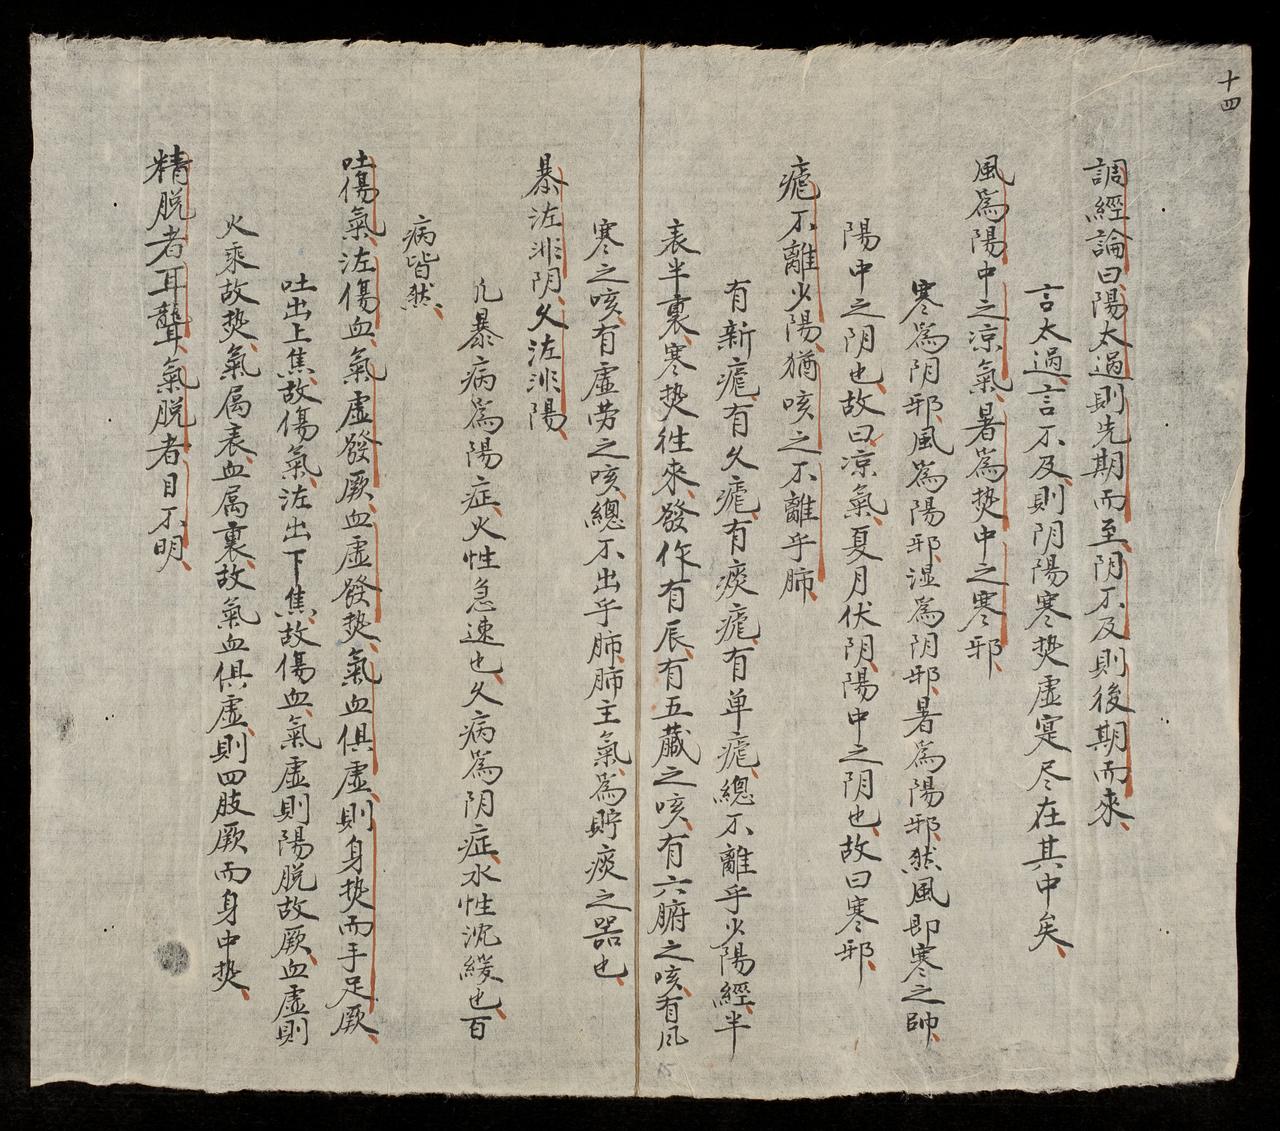 十四
調經論曰陽太過則先期而至阴不及則後期而來
言太過言不及則阴陽寒熱虚寔尽在其中矣
風為陽中之凉氣暑為熱中之寒邪
寒為阴邪風為陽邪湿為阴邪暑為陽邪然風即寒之帥
陽中之阴也故曰凉氣夏月伏阴陽中之阴也故曰寒邪
瘧不離少陽猶咳之不離乎肺
有新瘧有久瘧有痰瘧有单瘧總不離乎少陽經半
表半裏寒熱往來發作有辰有五藏之咳有六腑之咳有风
寒之咳有虚劳之咳總不出乎肺肺主氣為貯痰之器也
暴泻非阴久泻非陽
凡暴病為陽症火性急速也久病為阴症水性沈緩也百
病皆然
吐傷氣泻傷血氣虚發厥血虚發熱氣血俱虚則身熱而手足厥
吐出上焦故傷氣泻出下焦故傷血氣虚則陽脱故厥血虚則
火乘故熱氣属表血属裏故氣血俱虚則四肢厥而身中熱
精脱者耳聾氣脱者目不明